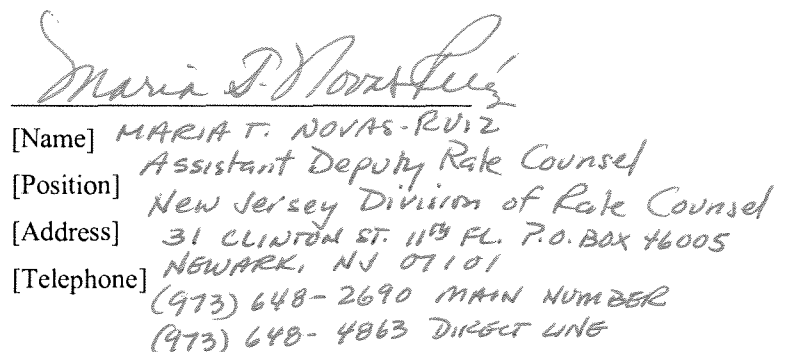 Maria T. Novas-Ruiz
[Name] MARIA T. NOVAS-RUIZ
Assistant Deputy Rate Counsel
[Position]
New Jersey Division of Rate Counsel
[Address] 31 CLINTON ST. 11th FL. P.O. BOX 46005
[Telephone] NEWARK, NJ 07101
(973) 648-2690 MAIN NUMBER
(973) 648-4863 DIRECT LINE